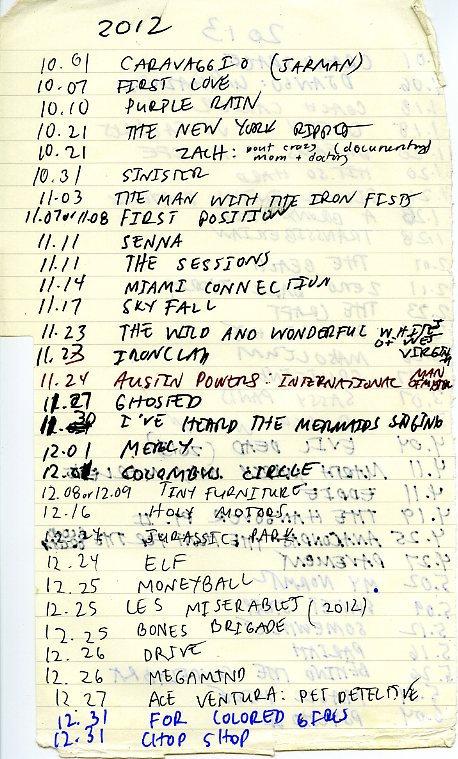 2012
10.01 CARAVAGGIO (JARMAN)
10.07 FIRST LOVE
10.10 PURPLE RAIN
10.21 THE NEW YORK RIPPER
10.21 ZACH: (documentary)
mom + doctors
10.31 SINISTER
11.03 THE MAN WITH THE IRON FISTS
11.07 or 11.08 FIRST POSITION
11.11 SENNA
11.11 THE SESSIONS
11.14 MIAMI CONNECTION
11.17 SKYFALL
11.23 THE WILD AND WONDERFUL WHITES
OF WEST
11.23 IRONCLAD VIRGINIA
11.24 AUSTIN POWERS: INTERNATIONAL MAN
OF MYSTERY
11.27 GHOSTED
11.30 I'VE HEARD THE MERMAIDS SINGING
12.01 MERCY
12.01 COLOMBUS CIRCLE
12.08 or 12.09 TINY FURNITURE
12.16 HOLY MOTORS
12.24 JURASSIC PARK
12.24 ELF
12.25 MONEYBALL
12.25 LES MISERABLES (2012)
12.25 BONES BRIGADE
12.26 DRIVE
12.26 MEGAMIND
12.27 ACE VENTURA: PET DETECTIVE
12.31 FOR COLORED GIRLS
12.31 CHOP SHOP